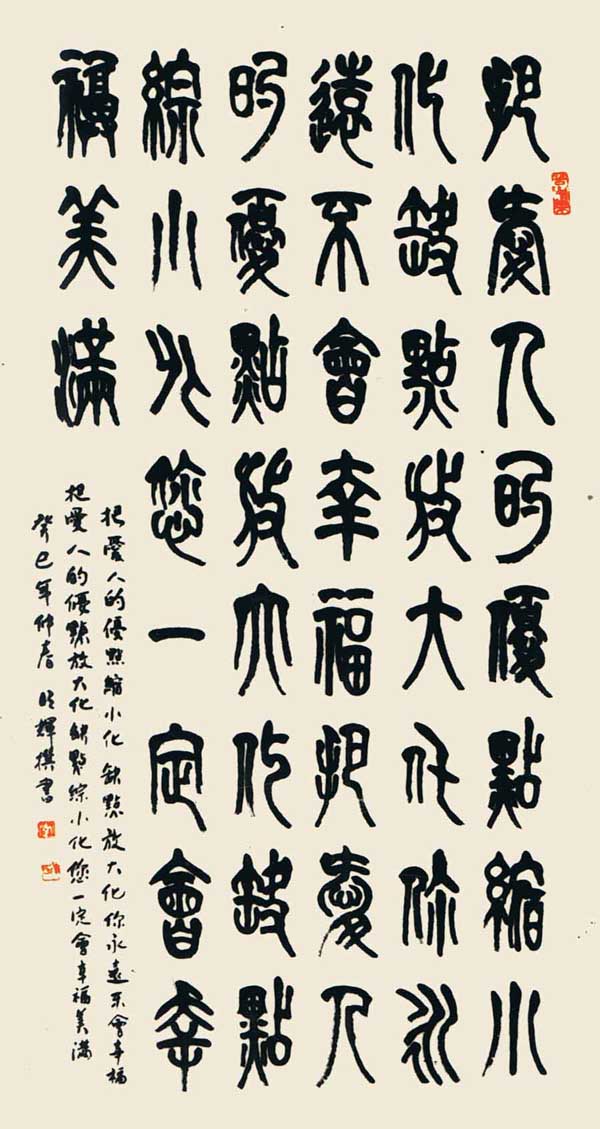 把愛人的優點縮小
化缺點放大化你永
遠不會幸福把愛人
的優點放大化缺點
綜小化您一定會幸
福美滿
把愛人的優點縮小化缺點放大化你永遠不會幸福
把愛人的優點放大化缺點綜小化您一定會幸福美滿
癸巳年仲春明輝撰書